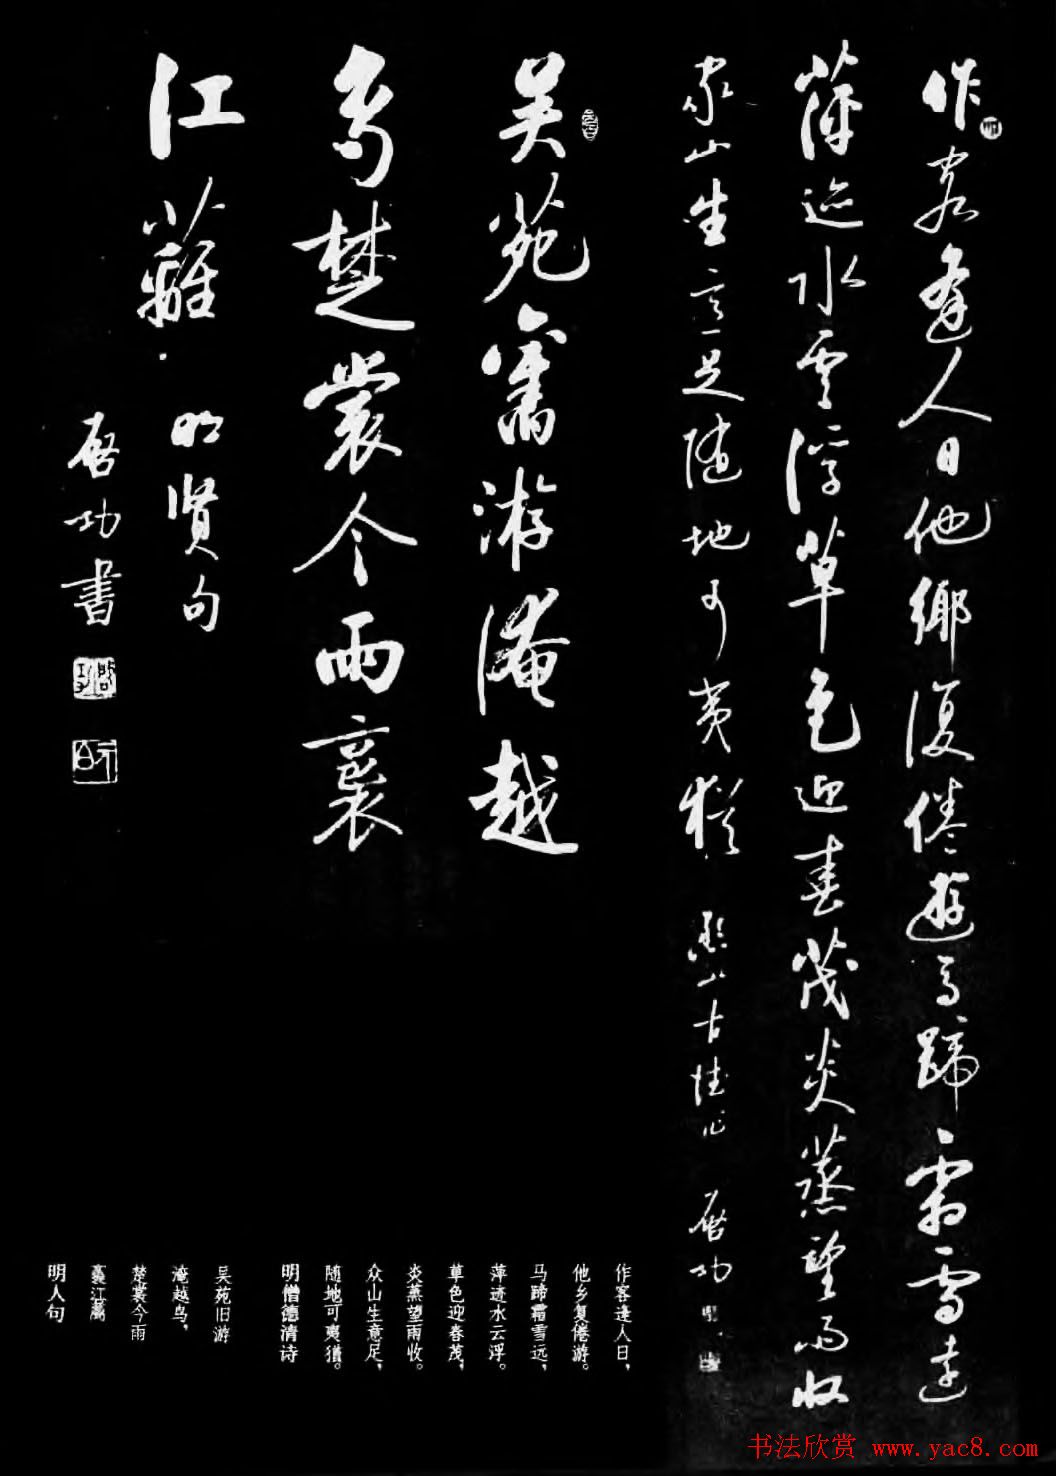 作客逢人日他鄉復倦遊馬蹄霜雪遠
萍迹水雲浮草色迎春茂炎蒸望雨收
衆山生意足随地可夷猶
憨山古德 启功
吴苑舊游淹越
鸟楚裳今雨裛
江蘺 明贤句
启功書
作客逢人日，
他乡复倦游。
马蹄霜雪远，
萍迹水云浮。
草色迎春茂，
炎蒸望雨收。
众山生意足，
随地可夷犹。
明僧德清诗
吴苑旧游
淹越鸟，
楚裳今雨
裛江蓠
明人句
书法欣赏 www.yac8.com